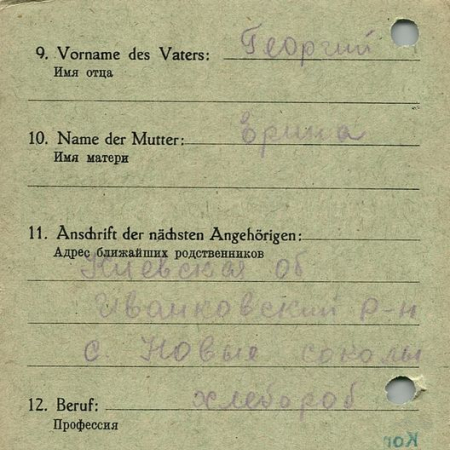 9. Vorname des Vaters: Георгий
Имя отца
10. Name der Mutter: Ерина
Имя матери
11. Anschrift der nächsten Angehörigen:
Адрес ближайших родственников
Киевская об
Иванковский р-н
с. Новые соколы
12. Beruf: хлебороб
Профессия